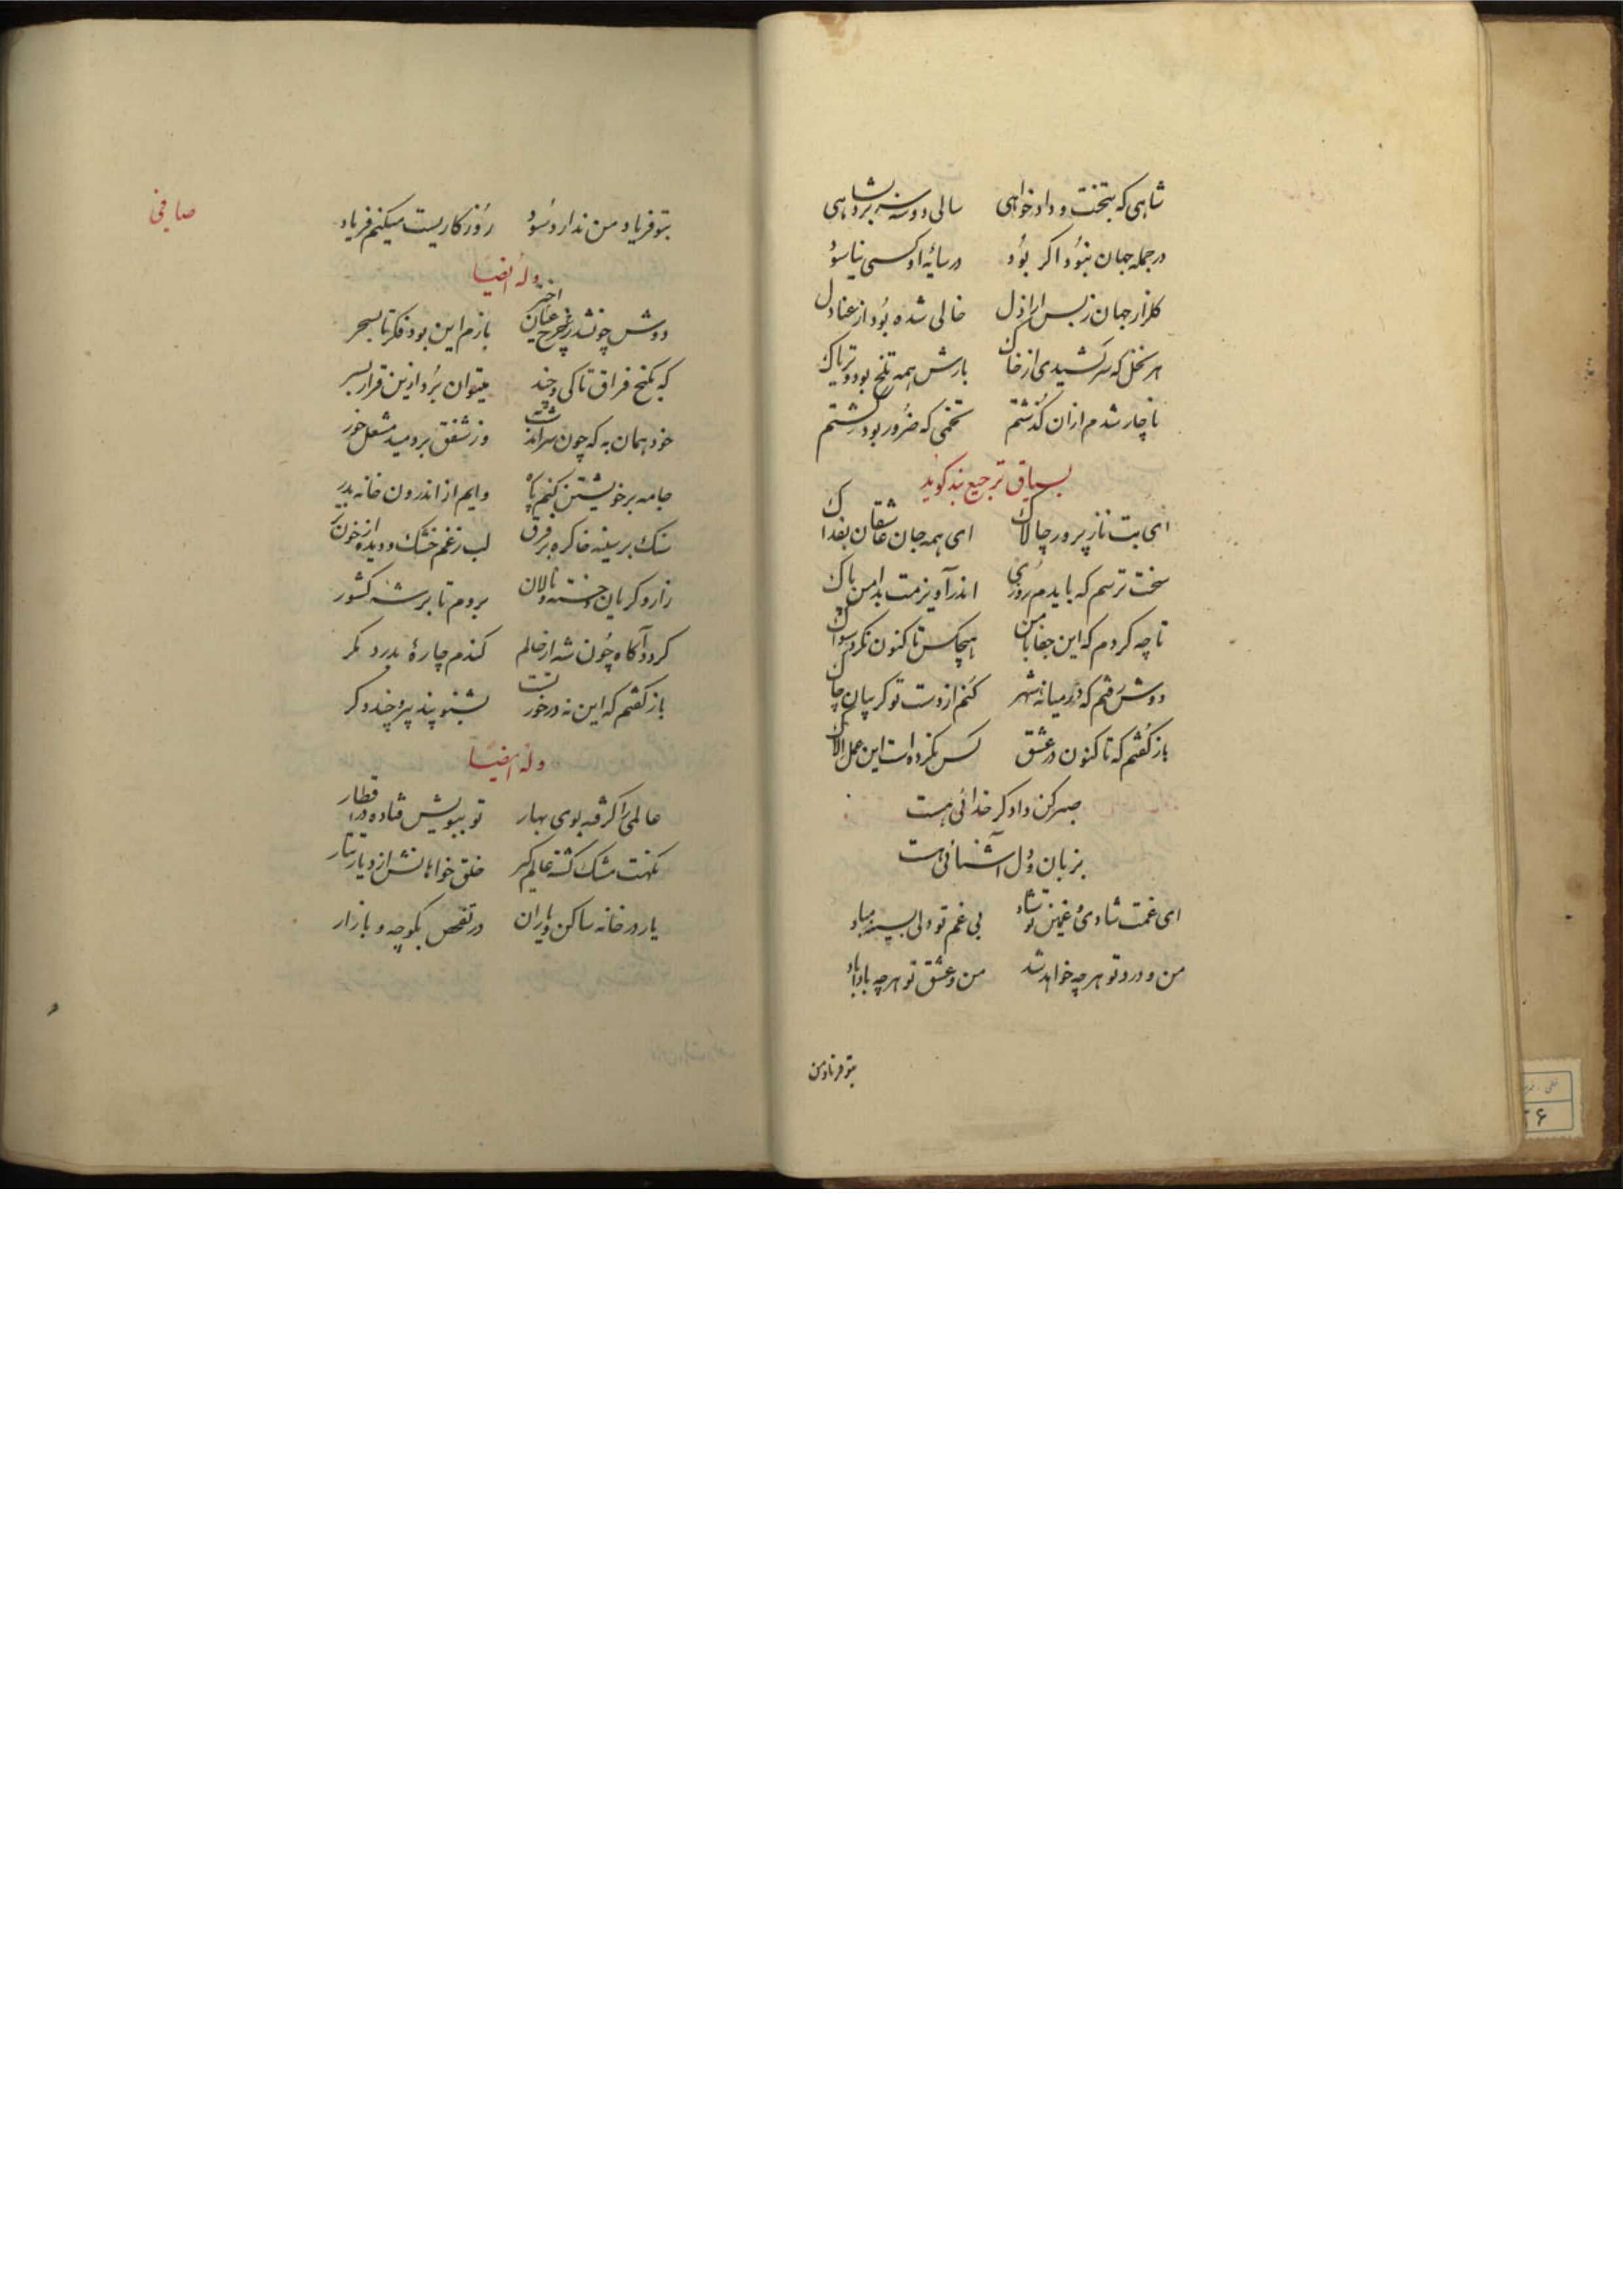 شاهی که بتخت و دادخواهی سالی دو سه برد بشاهی
در جمله جهان نبود اکر بود در سایهٔ او کسی نیاسود
کلزار جهان ز بس اراذل خالی شده بود از عنادل
هر نخل که سر کشیدی از خاک بارش همه تلخ بود و تریاک
ناچار شدم ازان کذشتم تخمی که ضرور بود کشتم
بسیاق ترجیع بند کوید
ای بت نازپرور چالاک ای همه جان عاشقان بفداک
سخت ترسم که بایدم روزی اندر آویزمت بدامن پاک
تا چه کردم که این جفا با من هیچکس تا کنون نکرد سواک
دوش رفتم که در میانهٔ شهر کنم از دست تو کریبان چاک
باز کفتم که تا کنون در عشق کس نکرده است این عمل الاک
صبر کن داد کر خدائی هست
بزبان دل آشنائی هست
ای غمت شادی و غمین تو شاد بی غم تو دلی بسینه مباد
من و درد تو هرچه خواهد شد من و عشق تو هرچه باداباد
بتو فریاد من
صافی
بتو فریاد من ندارد سود روزکاریست میکنم فریاد
وله ایضا
دوش چون شد ز چرخ عیان اختر بازم این بود فکر تا بسحر
که بکنج فراق تا کی و چند میتوان برد ازین قرار بسر
خود همان به که چون سر آمد شب وز شفق بردمید مشعل خور
جامه بر خویشتن کنم پاره وایم از اندرون خانه بدر
سنک بر سینه خاک ره بر فرق لب ز غم خشک و دیده از خون تر
زار و کریان و خسته و نالان بروم تا بر شه کشور
کردد آکاه چون شه از حالم کندم چارهٔ بدرد مکر
باز کفتم که این نه در خور تست بشنو پند پیر و چند دکر
وله ایضا
عالمی را کرفته بوی بهار تو ببویش فتاده در قطار
نکهت مشک کشته عالم کیر خلق خواهانش از دیار تتار
یار در خانه ساکن و یاران در تفحص بکوچه و بازار